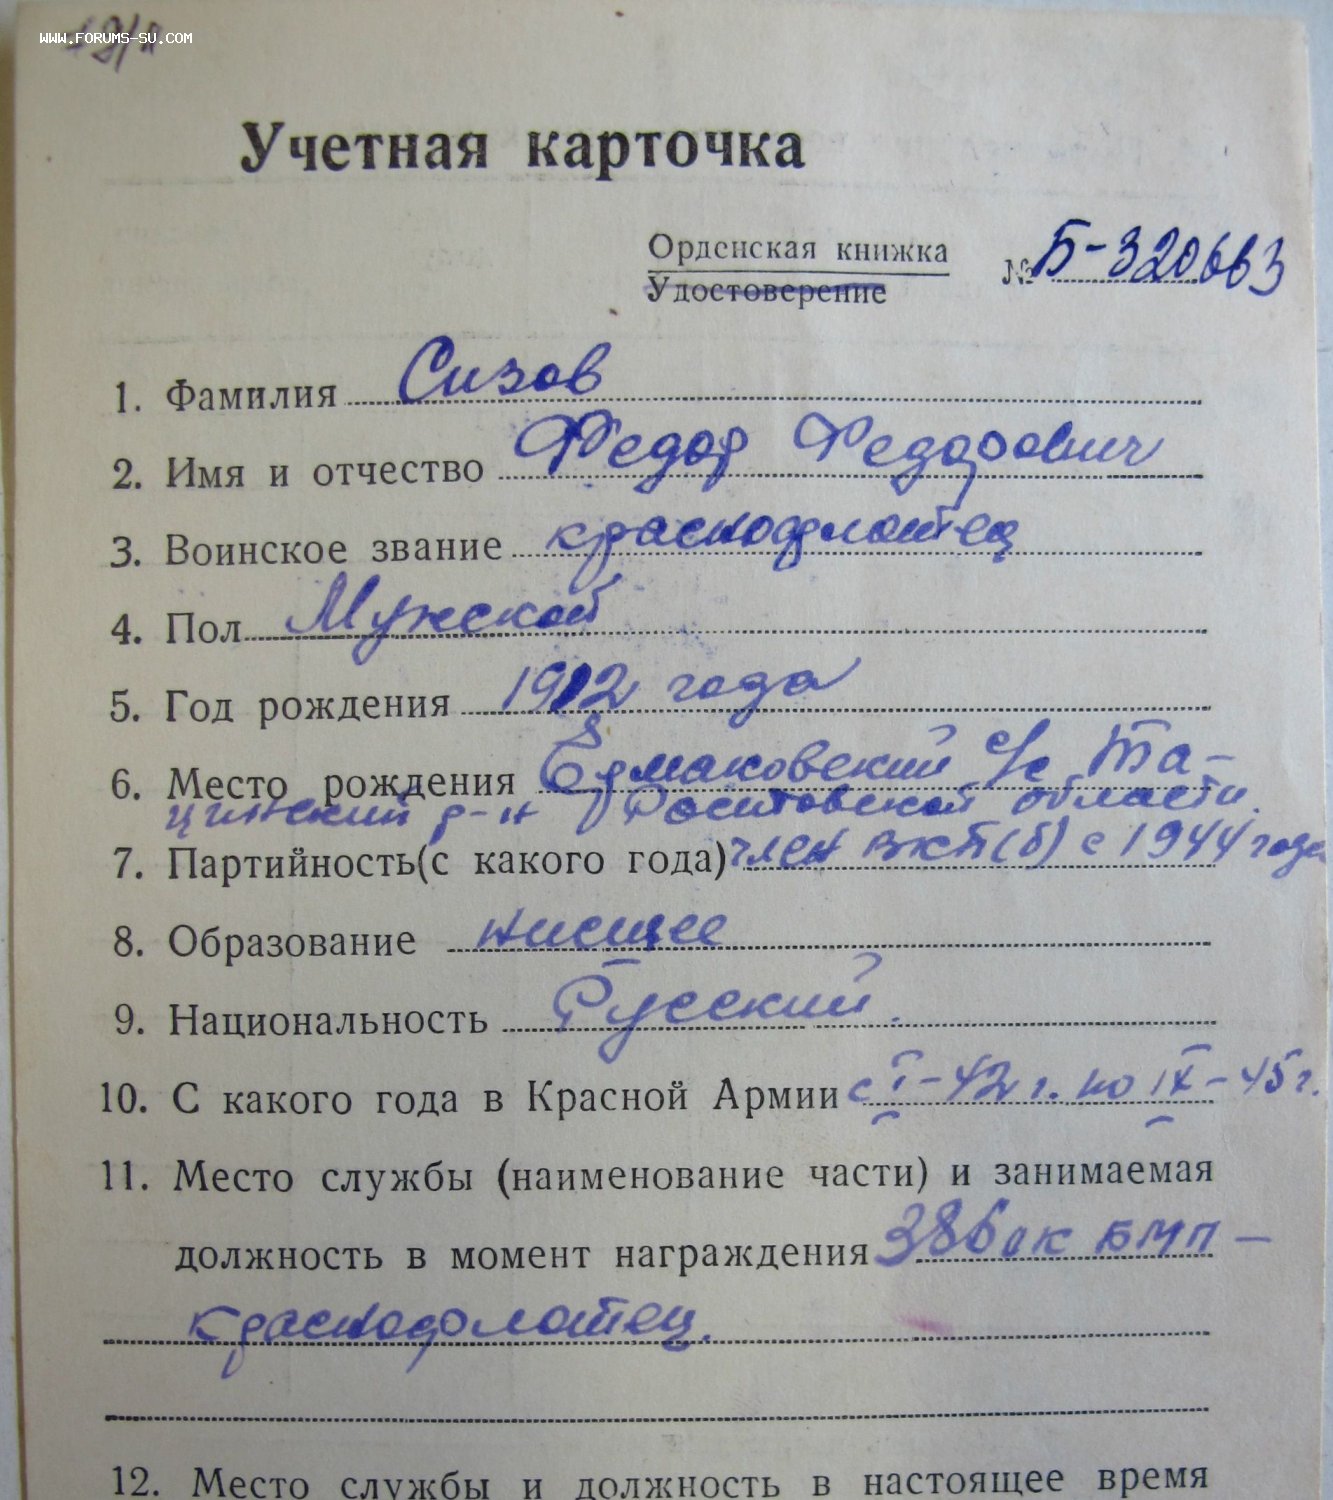 www.forums-su.com
Учетная карточка
Орденская книжка № Б-320663
Удостоверение
1. Фамилия Сизов
2. Имя и отчество Федор Федорович
3. Воинское звание краснофлотец
4. Пол Мужской
5. Год рождения 1912 года
6. Место рождения Ермаковский с/с Та-
цинский р-н Ростовской области.
7. Партийность(с какого года) член ВКП(б) с 1944 года
8. Образование нисшее
9. Национальность Русский.
10. С какого года в Красной Армии с I-42 г. по IX-45 г.
11. Место службы (наименование части) и занимаемая
должность в момент награждения 386 ОК БМП –
краснофлотец.
12. Место службы и должность в настоящее время